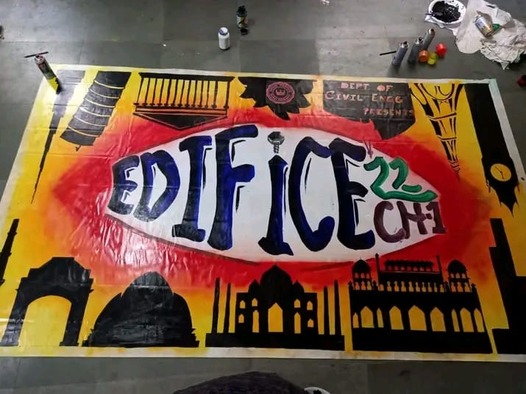 DEPT OF
CIVIL ENGG
PRESENTS
EDIFiCE'22
CH:1